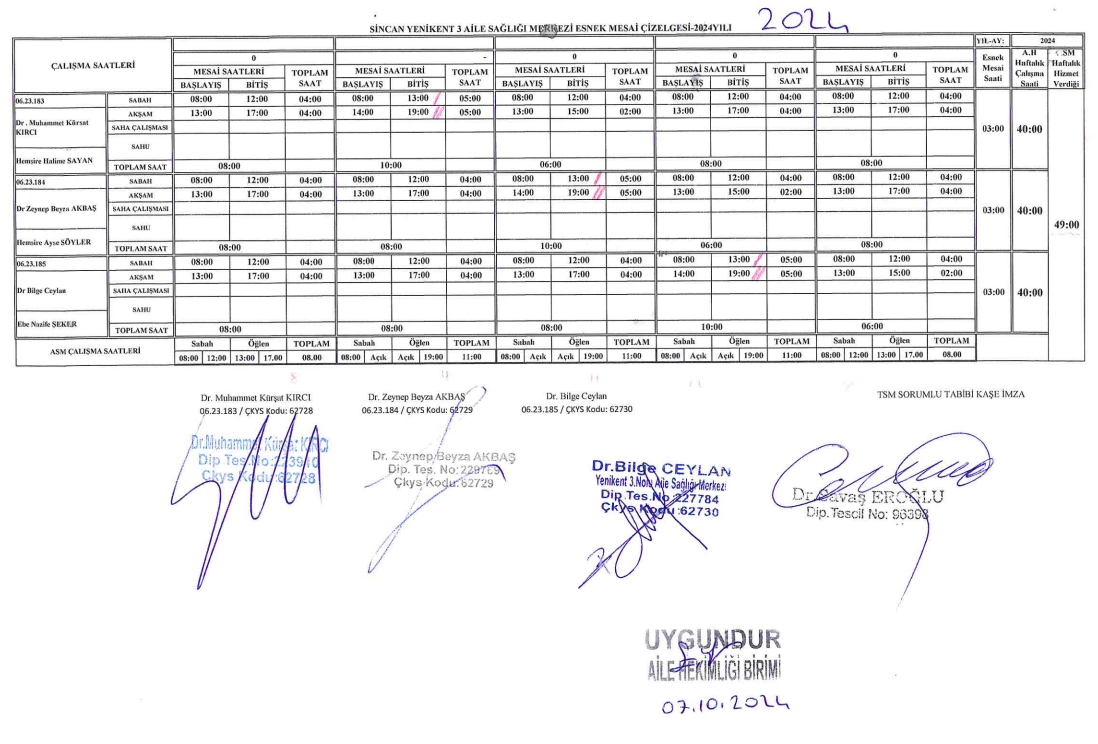 2024
SİNCAN YENİKENT 3 AİLE SAĞLIĞI MERKEZİ ESNEK MESAİ ÇİZELGESİ-2024YILI
ÇALIŞMA SAATLERİ 0 - 0 0 0 YIL-AY: 2024
MESAİ SAATLERİ TOPLAM SAAT MESAİ SAATLERİ TOPLAM SAAT MESAİ SAATLERİ TOPLAM SAAT MESAİ SAATLERİ TOPLAM SAAT MESAİ SAATLERİ TOPLAM SAAT Esnek Mesai Saati A.H Haftalık Çalışma Saati SM Haftalık Hizmet Verdiği
BAŞLAYIŞ BİTİŞ BAŞLAYIŞ BİTİŞ BAŞLAYIŞ BİTİŞ BAŞLAYIŞ BİTİŞ BAŞLAYIŞ BİTİŞ
06.23.183 SABAH 08:00 12:00 04:00 08:00 13:00 05:00 08:00 12:00 04:00 08:00 12:00 04:00 08:00 12:00 04:00
Dr . Muhammet Kürşat KIRCI AKŞAM 13:00 17:00 04:00 14:00 19:00 05:00 13:00 15:00 02:00 13:00 17:00 04:00 13:00 17:00 04:00
SAHA ÇALIŞMASI 03:00 40:00
SAHU
Hemşire Halime SAYAN TOPLAM SAAT 08:00 10:00 06:00 08:00 08:00
06.23.184 SABAH 08:00 12:00 04:00 08:00 12:00 04:00 08:00 13:00 05:00 08:00 12:00 04:00 08:00 12:00 04:00
AKŞAM 13:00 17:00 04:00 13:00 17:00 04:00 14:00 19:00 05:00 13:00 15:00 02:00 13:00 17:00 04:00
Dr Zeynep Beyza AKBAŞ SAHA ÇALIŞMASI 03:00 40:00
SAHU 49:00
Hemşire Ayşe SÖYLER TOPLAM SAAT 08:00 08:00 10:00 06:00 08:00
06.23.185 SABAH 08:00 12:00 04:00 08:00 12:00 04:00 08:00 12:00 04:00 08:00 13:00 05:00 08:00 12:00 04:00
AKŞAM 13:00 17:00 04:00 13:00 17:00 04:00 13:00 17:00 04:00 14:00 19:00 05:00 13:00 15:00 02:00
Dr Bilge Ceylan SAHA ÇALIŞMASI 03:00 40:00
SAHU
Ebe Nazife ŞEKER TOPLAM SAAT 08:00 08:00 08:00 10:00 06:00
ASM ÇALIŞMA SAATLERİ Sabah Öğlen TOPLAM Sabah Öğlen TOPLAM Sabah Öğlen TOPLAM Sabah Öğlen TOPLAM Sabah Öğlen TOPLAM
08:00 12:00 13:00 17.00 08.00 08:00 Açık Açık 19:00 11:00 08:00 Açık Açık 19:00 11:00 08:00 Açık Açık 19:00 11:00 08:00 12:00 13:00 17.00 08.00
8 11 11 11
Dr. Muhammet Kürşat KIRCI Dr. Zeynep Beyza AKBAŞ Dr. Bilge Ceylan TSM SORUMLU TABİBİ KAŞE İMZA
06.23.183 / ÇKYS Kodu: 62728 06.23.184 / ÇKYS Kodu: 62729 06.23.185 / ÇKYS Kodu: 62730
Dr.Muhammet Kürşat KIRCI
Dip Tes.No:
Çkys Kodu:62728
Dr. Zeynep Beyza AKBAŞ
Dip. Tes. No:
Çkys Kodu: 62729
Dr.Bilge CEYLAN
Yenikent 3.Nolu Aile Sağlığı Merkezi
Dip.Tes.No 227784
Çkys Kodu:62730
Dr.Savaş EROĞLU
Dip.Tescil No: 96398
UYGUNDUR
AİLE HEKİMLİĞİ BİRİMİ
07.10.2024